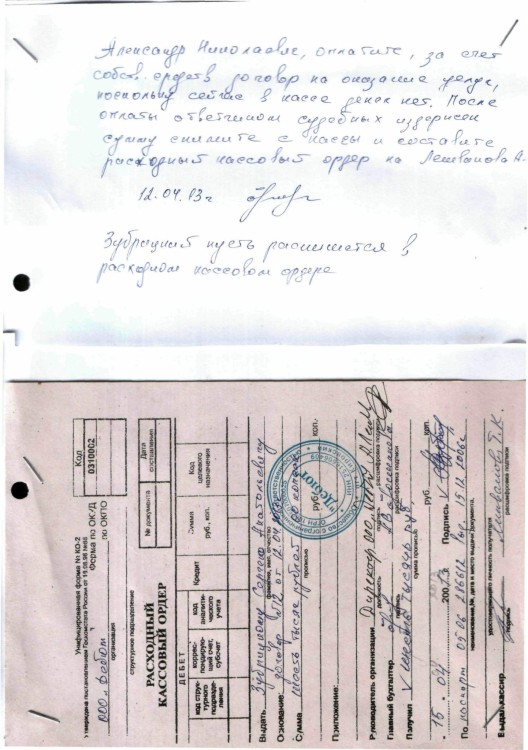 Александр Николаевич, оплатите, за счет
собств. средств договор на оказание услуг,
поскольку сейчас в кассе денег нет. После
оплаты ответчиком судебных издержек
сумму снимите с кассы и составите
расходный кассовый ордер на
12.04.13 г
Зубрицкий пусть распишется в
расходном кассовом ордере
Унифицированная форма № КО-2
Утверждена постановлением Госкомстата России от
Код
Форма по ОКУД
0310002
по ОКПО
ООО
организация
структурное подразделение
РАСХОДНЫЙ
КАССОВЫЙ ОРДЕР
№ документа
Дата составления
ДЕБЕТ
Кредит
Сумма руб., коп.
Код целевого назначения
код структурного подразделения
корреспондирующий счет, субсчет
код аналитического учета
Выдать Зубрицкому Сергею Анатольевичу
фамилия, имя, отчество
Основание: договор от 12.04
Сумма шесть тысяч рублей 00 копеек
прописью
руб. коп.
Приложение:
Руководитель организации Директор ООО
должность подпись расшифровка подписи
Главный бухгалтер
подпись расшифровка подписи
Получил шесть тысяч руб,
сумма прописью
руб. коп.
15. 04 200 г. Подпись
По паспорт 05 06
наименование, №, дата и место выдачи документа,
удостоверяющего личность получателя
Выдал кассир
подпись расшифровка подписи